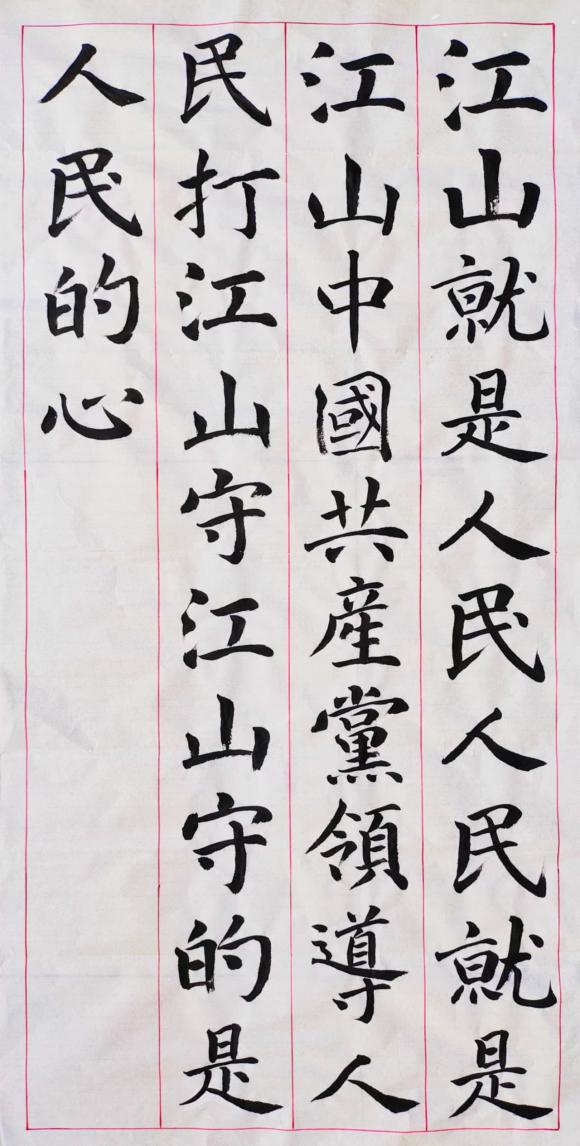 江山就是人民人民就是
江山中國共産黨領導人
民打江山守江山守的是
人民的心